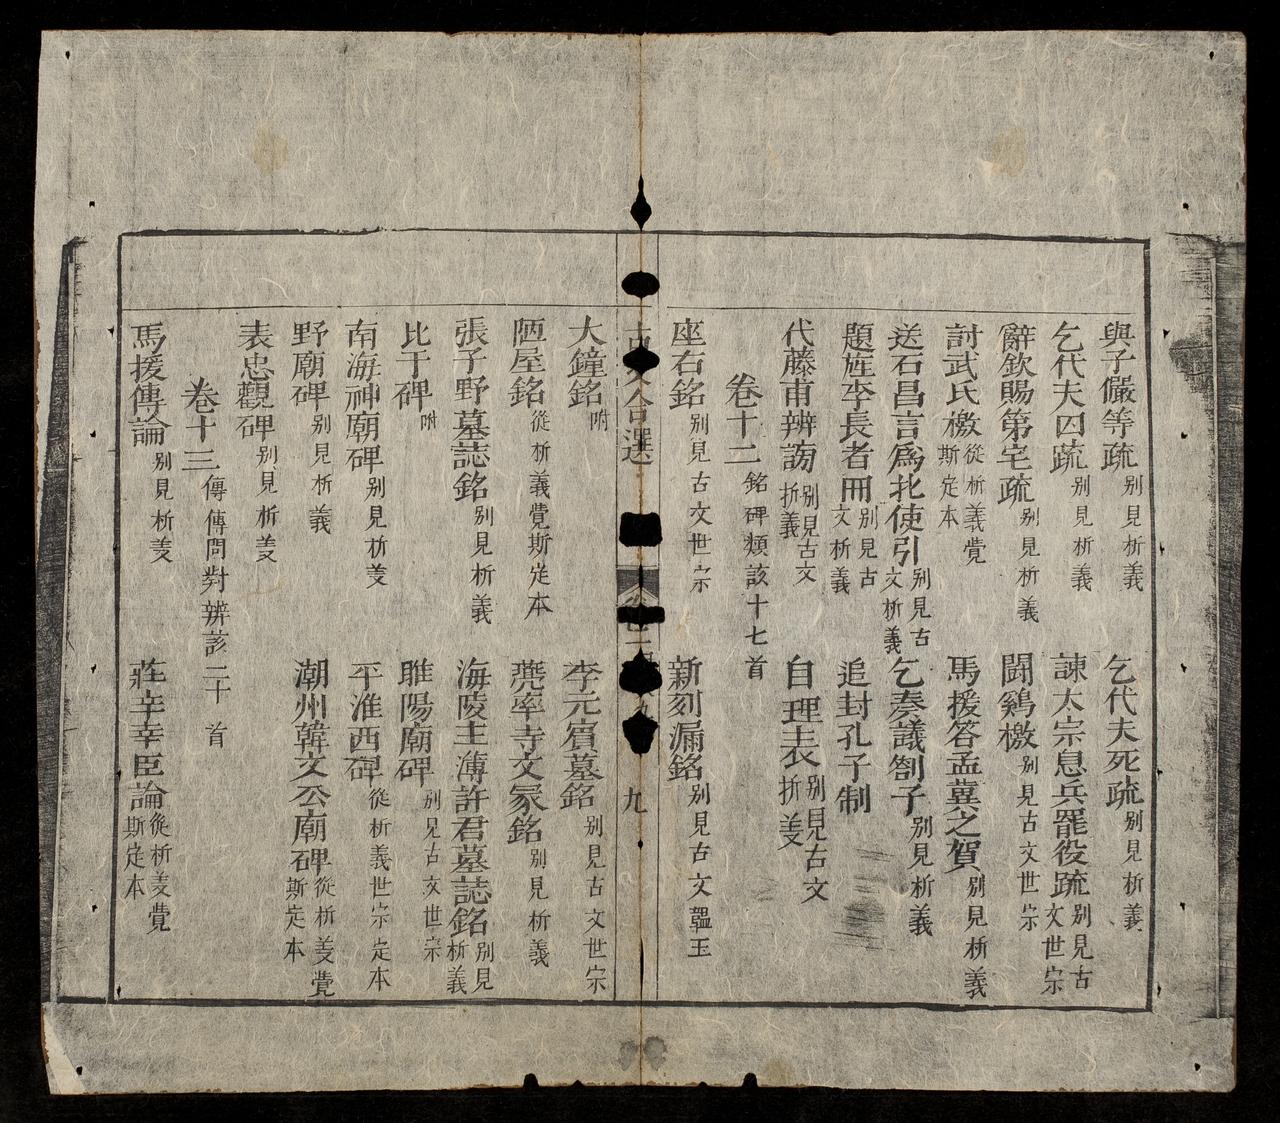 與子儼等疏 別見析義 乞代夫死疏 別見析義
乞代夫囚疏 別見析義 諫太宗息兵罷役疏 別見古文世宗
辭欽賜第宅疏 別見析義 鬪鷄檄 別見古文世宗
討武氏檄 從析義覺斯定本 馬援答孟冀之賀 別見析義
送石昌言爲北使引 別見古文析義 乞奏議劄子 別見析義
題旌李長者冊 別見古文析義 追封孔子制
代藤甫辨謗 別見古文折義 自理表 別見古文折义
卷十二 銘碑類該十七首
座右銘 別見古文世宗 新刻漏銘 別見古文韞玉
古文合選 卷 九
大鐘銘 附 李元賓墓銘 別見古文世宗
陋屋銘 從析義覺斯定本 堯率寺文冢銘 別見析義
張子野墓誌銘 別見析義 海陵主薄許君墓誌銘 別見析義
比干碑 附 睢陽廟碑 別見古文世宗
南海神廟碑 別見析义 平淮西碑 從析義世宗定本
野廟碑 別見析義 潮州韓文公廟碑 從析义覺斯定本
表忠觀碑 別見析义
卷十三 傳傳問對辨該二十首
馬援傳論 別見析义 莊辛幸臣論 從析义覺斯定本